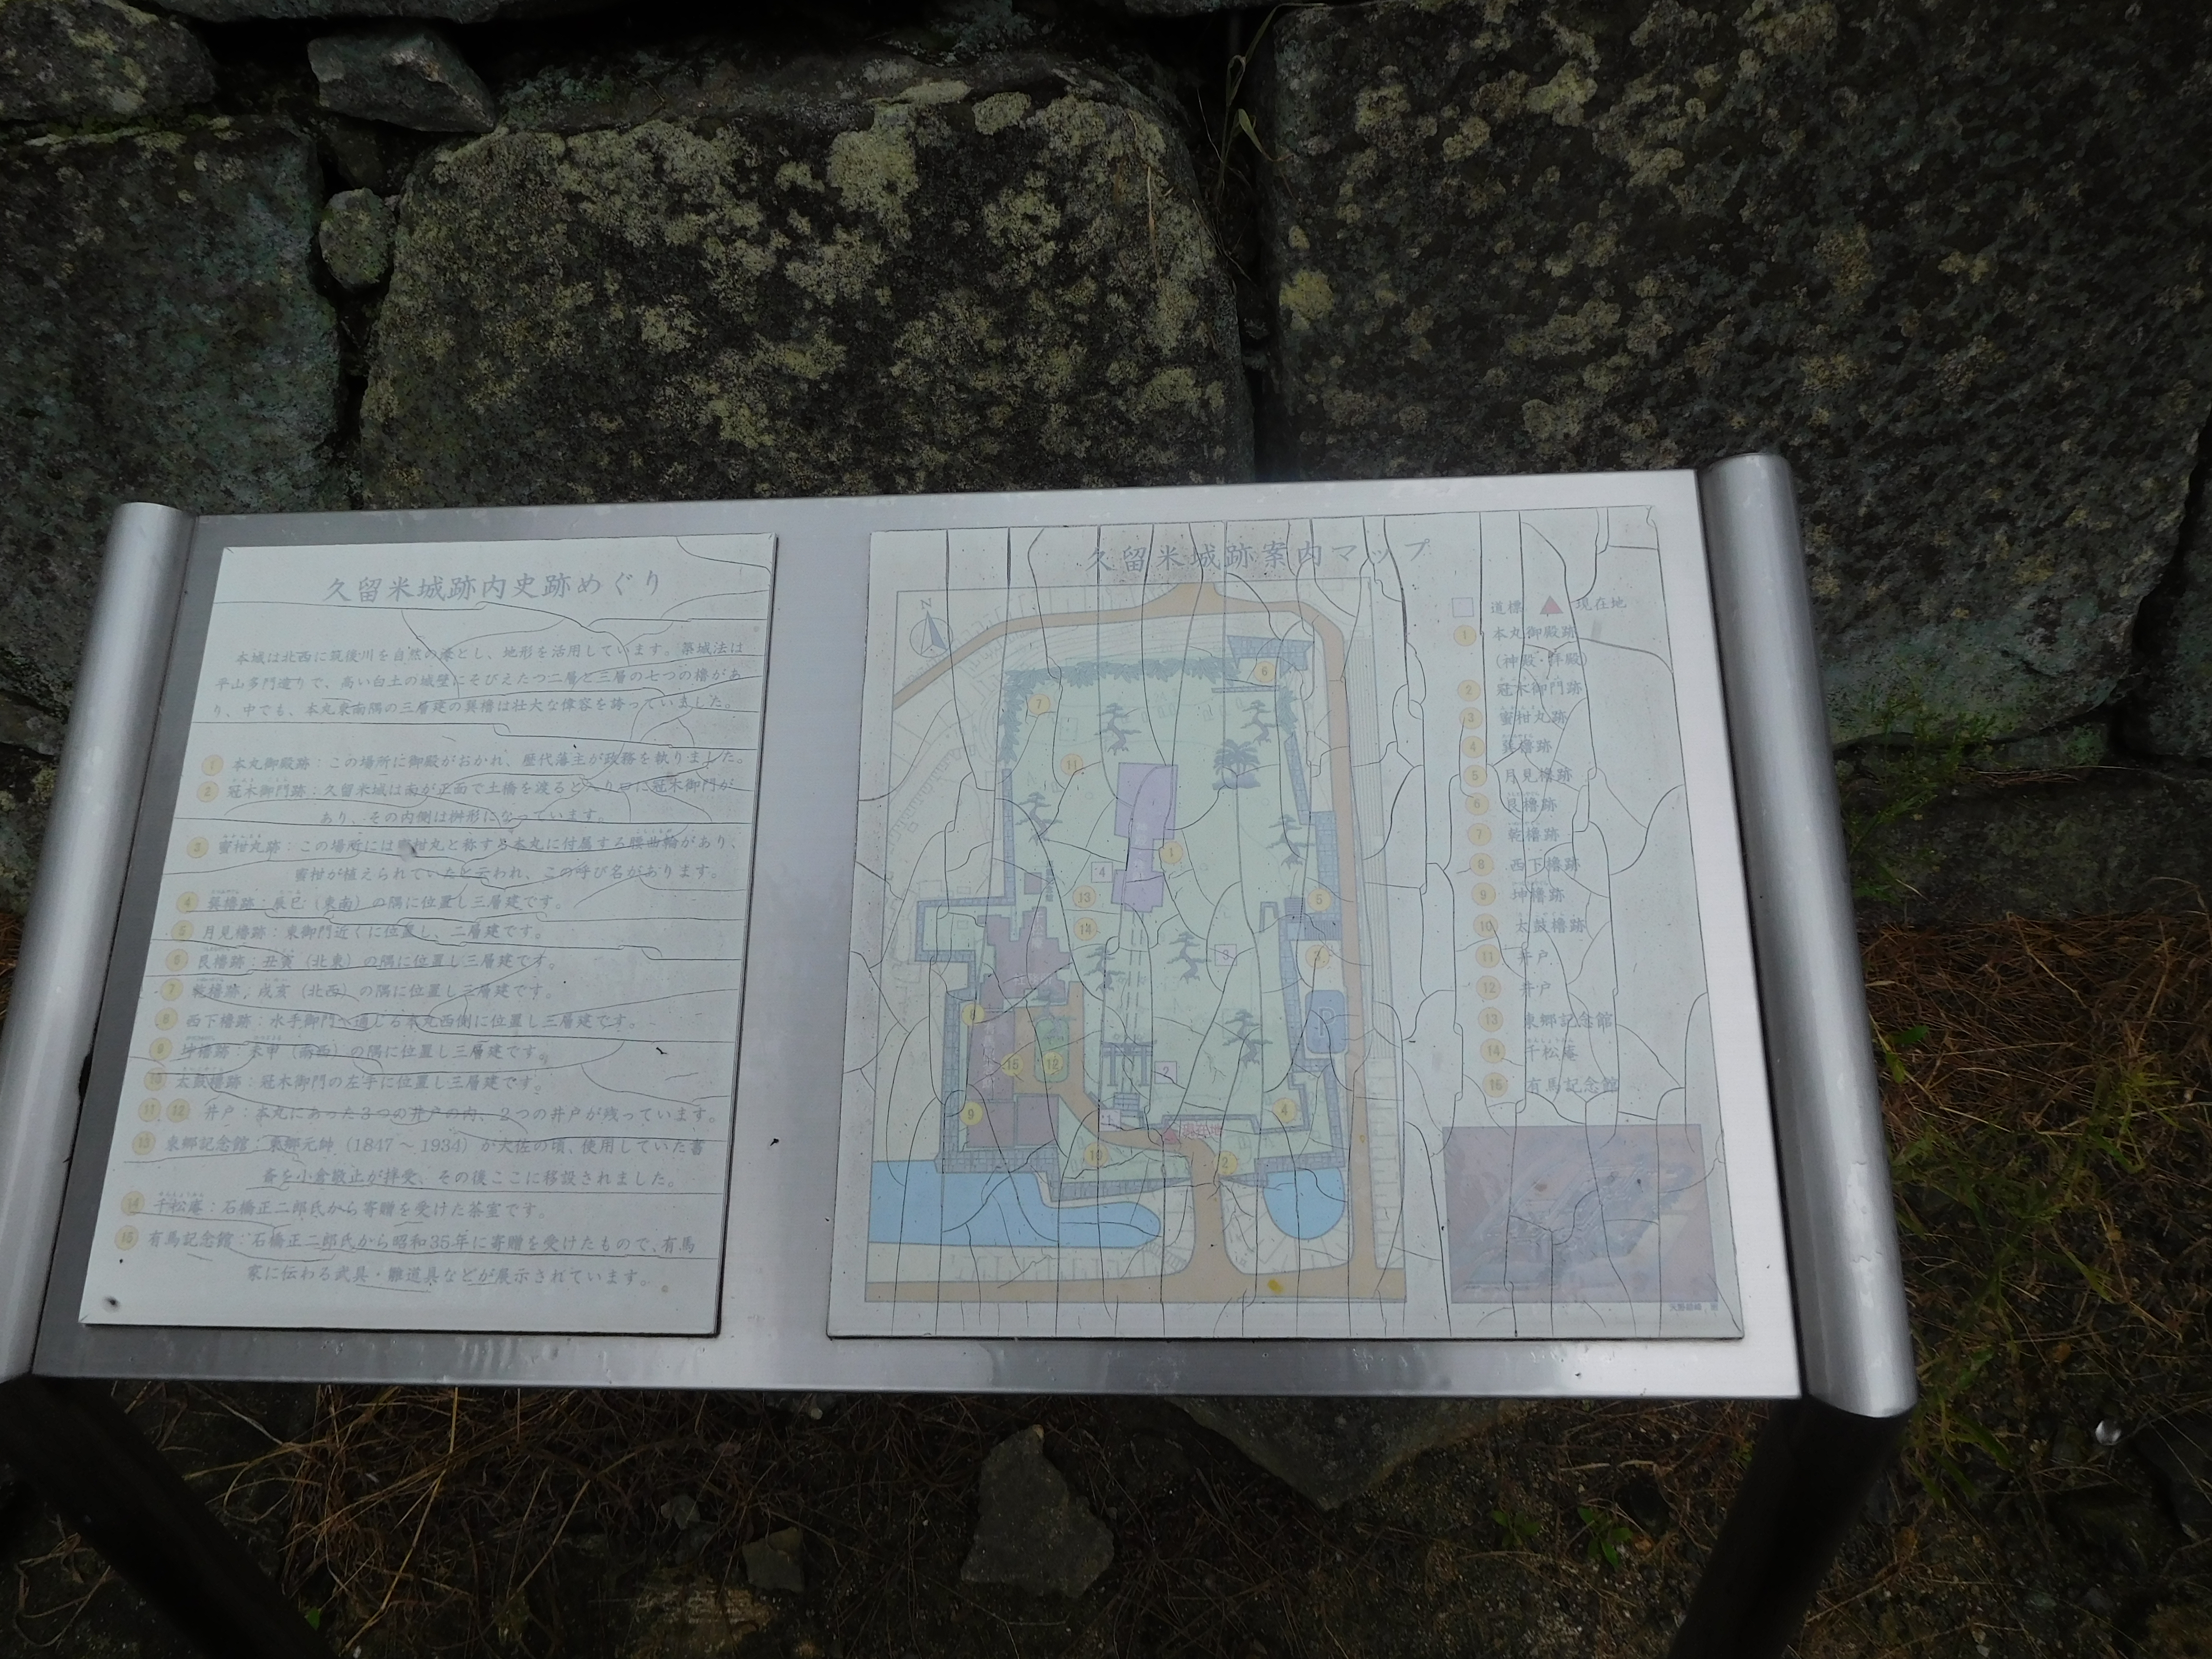 久留米城跡内史跡めぐり
本城は北西に筑後川を自然の濠とし、地形を活用しています。築城法は
平山多門造りで、高い白土の城壁にそびえたつ二層と三層の七つの櫓があ
り、中でも、本丸東南隅の三層建の巽櫓は壮大な偉容を誇っていました。
1 本丸御殿跡：この場所に御殿がおかれ、歴代藩主が政務を執りました。
2 冠木御門跡：久留米城は南が正面で土橋を渡ると入り口に冠木御門が
あり、その内側は桝形になっています。
3 蜜柑丸跡：この場所には蜜柑丸と称する本丸に付属する腰曲輪があり、
蜜柑が植えられていたと云われ、この呼び名があります。
4 巽櫓跡：辰巳（東南）の隅に位置し三層建です。
5 月見櫓跡：東御門近くに位置し、二層建です。
6 艮櫓跡：丑寅（北東）の隅に位置し三層建です。
7 乾櫓跡：戌亥（北西）の隅に位置し三層建です。
8 西下櫓跡：水手御門へ通じる本丸西側に位置し三層建です。
9 坤櫓跡：未申（南西）の隅に位置し三層建です。
10 太鼓櫓跡：冠木御門の左手に位置し三層建です。
11 12 井戸：本丸にあった3つの井戸の内、2つの井戸が残っています。
13 東郷記念館：東郷元帥（1847～1934）が大佐の頃、使用していた書
斎を小倉敬止が拝受、その後ここに移設されました。
14 千松庵：石橋正二郎氏から寄贈を受けた茶室です。
15 有馬記念館：石橋正二郎氏から昭和35年に寄贈を受けたもので、有馬
家に伝わる武具・雛道具などが展示されています。
久留米城跡案内マップ
道標 現在地
1 本丸御殿跡
（神殿・拝殿）
2 冠木御門跡
3 蜜柑丸跡
4 巽櫓跡
5 月見櫓跡
6 艮櫓跡
7 乾櫓跡
8 西下櫓跡
9 坤櫓跡
10 太鼓櫓跡
11 井戸
12 井戸
13 東郷記念館
14 千松庵
15 有馬記念館
N
6
7
11
1
4
13
14
5
3
3
8
P
15
12
2
9
1
4
現在地
10
2